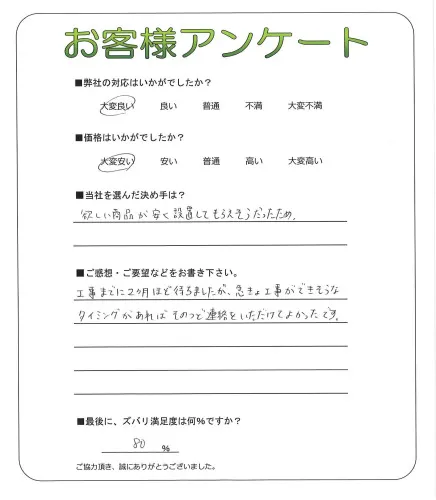 お客様アンケート
■弊社の対応はいかがでしたか？
大変良い 良い 普通 不満 大変不満
■価格はいかがでしたか？
大変安い 安い 普通 高い 大変高い
■当社を選んだ決め手は？
欲しい商品が安く設置してもらえそうだったため。
■ご感想・ご要望などをお書き下さい。
工事までに2ヶ月ほど待ちましたが、急きょ工事ができそうな
タイミングがあればそのつど連絡をいただけてよかったです。
■最後に、ズバリ満足度は何％ですか？
80 ％
ご協力頂き、誠にありがとうございました。